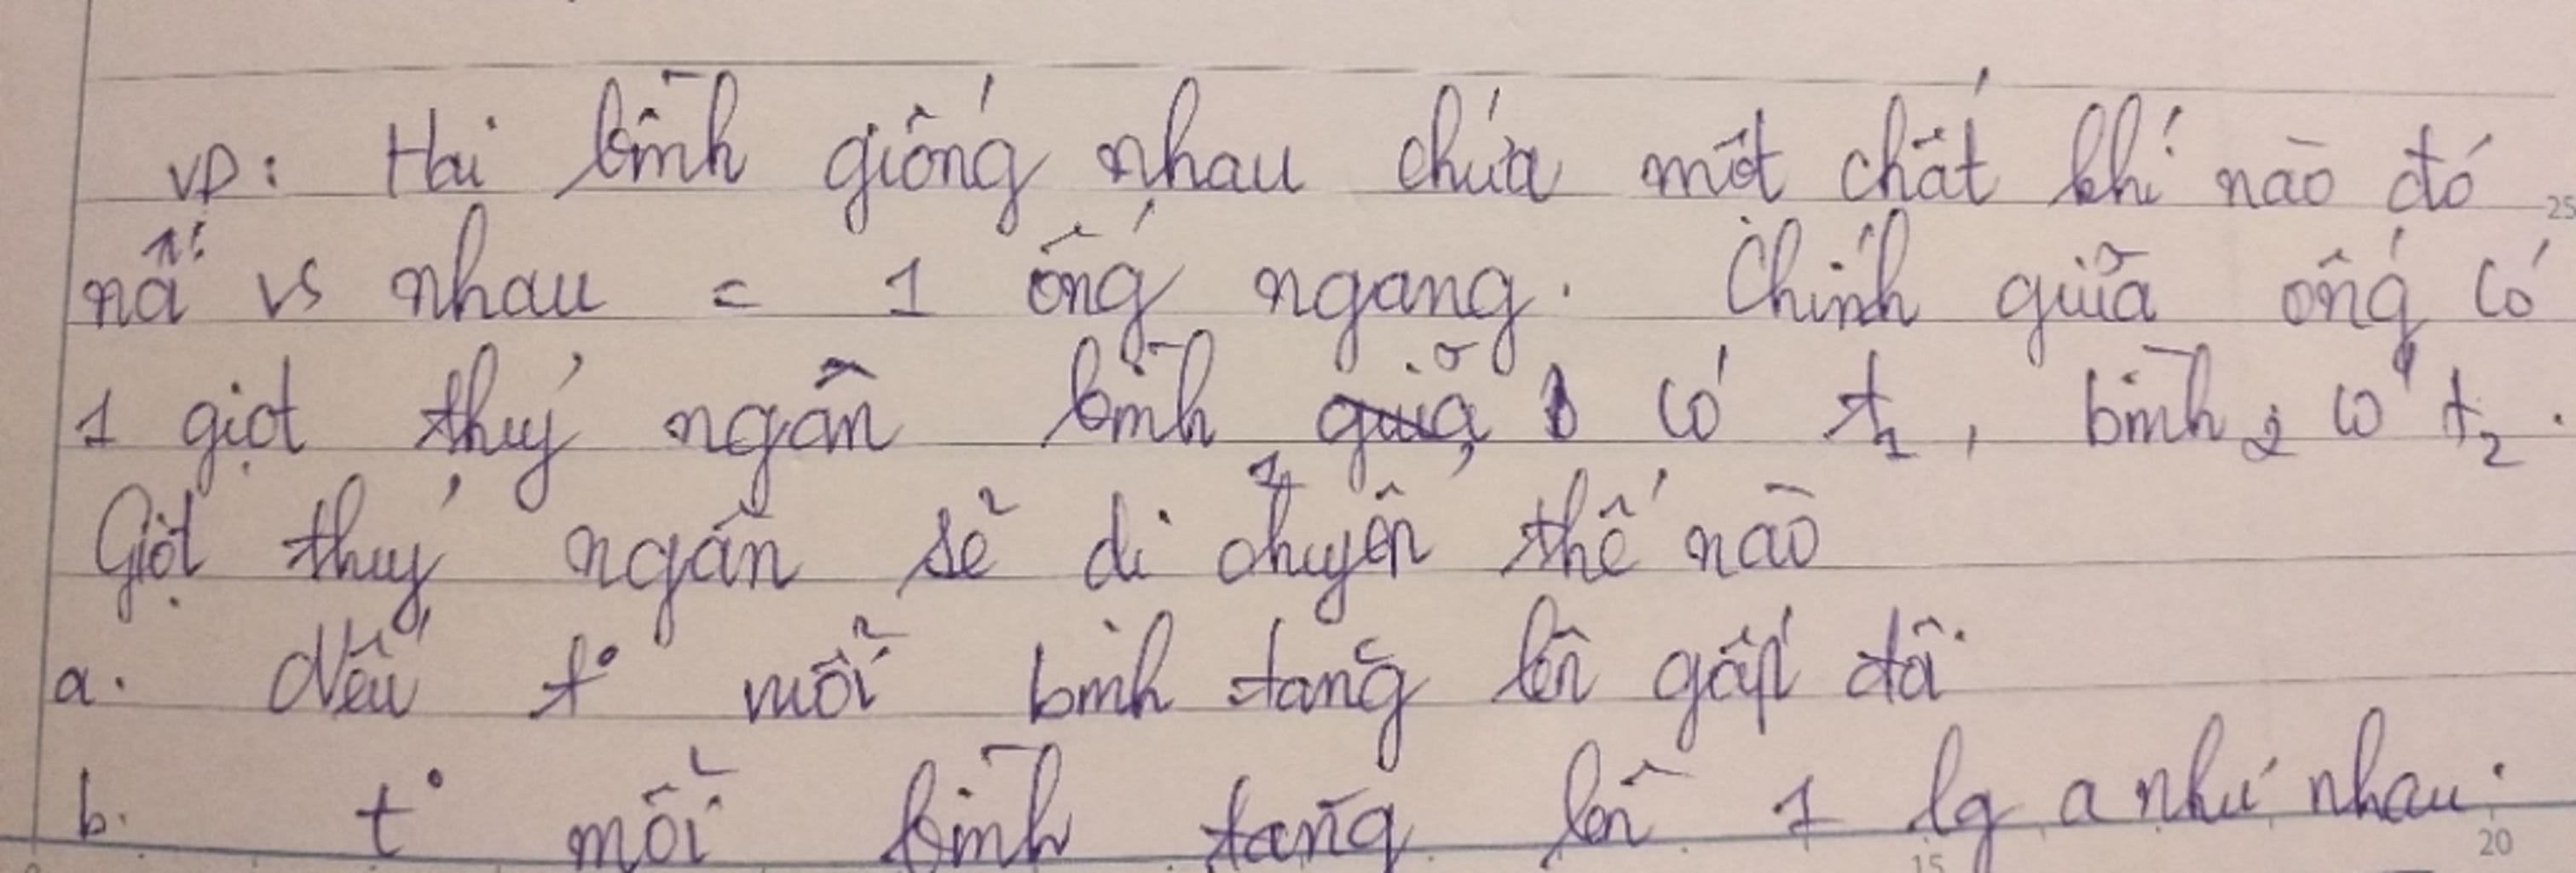 VD: Hai bình giống nhau chứa một chất khí nào đó 25
nối vs nhau = 1 ống ngang. Chính giữa ống có
1 giọt thuỷ ngân bình 1 có t1, bình 2 có t2.
Giọt thuỷ ngân sẽ di chuyển thế nào
a. Nếu t° mỗi bình tăng lên gấp đôi
b. t° mỗi bình tăng lên 1 lg a như nhau.
15 20